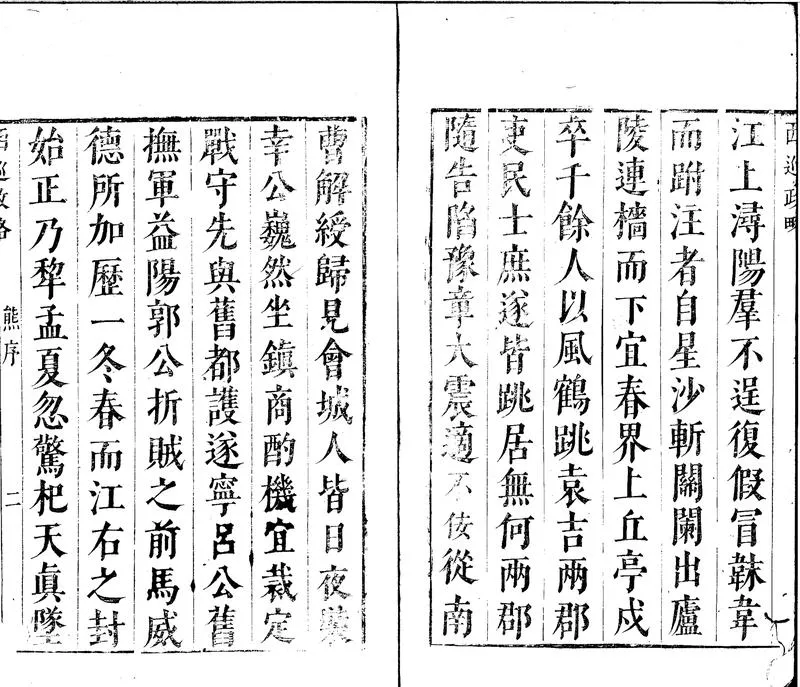 西巡政略
江上潯陽羣不逞復假冒韎韋
而跗注者自星沙斬關闌出廬
陵連檣而下宜春界上丘亭戍
卒千餘人以風鶴跳袁吉兩郡
吏民士庶遂皆跳居無何兩郡
隨告陷豫章大震適不佞從南
曹解綬歸見會城人皆日夜裝
幸公巍然坐鎮商酌機宜裁定
戰守先與舊都護遂寧呂公舊
撫軍益陽郭公折賊之前馬威
德所加歷一冬春而江右之封
始正乃犂孟夏忽驚杞天眞墜
西巡政略
熊序
二